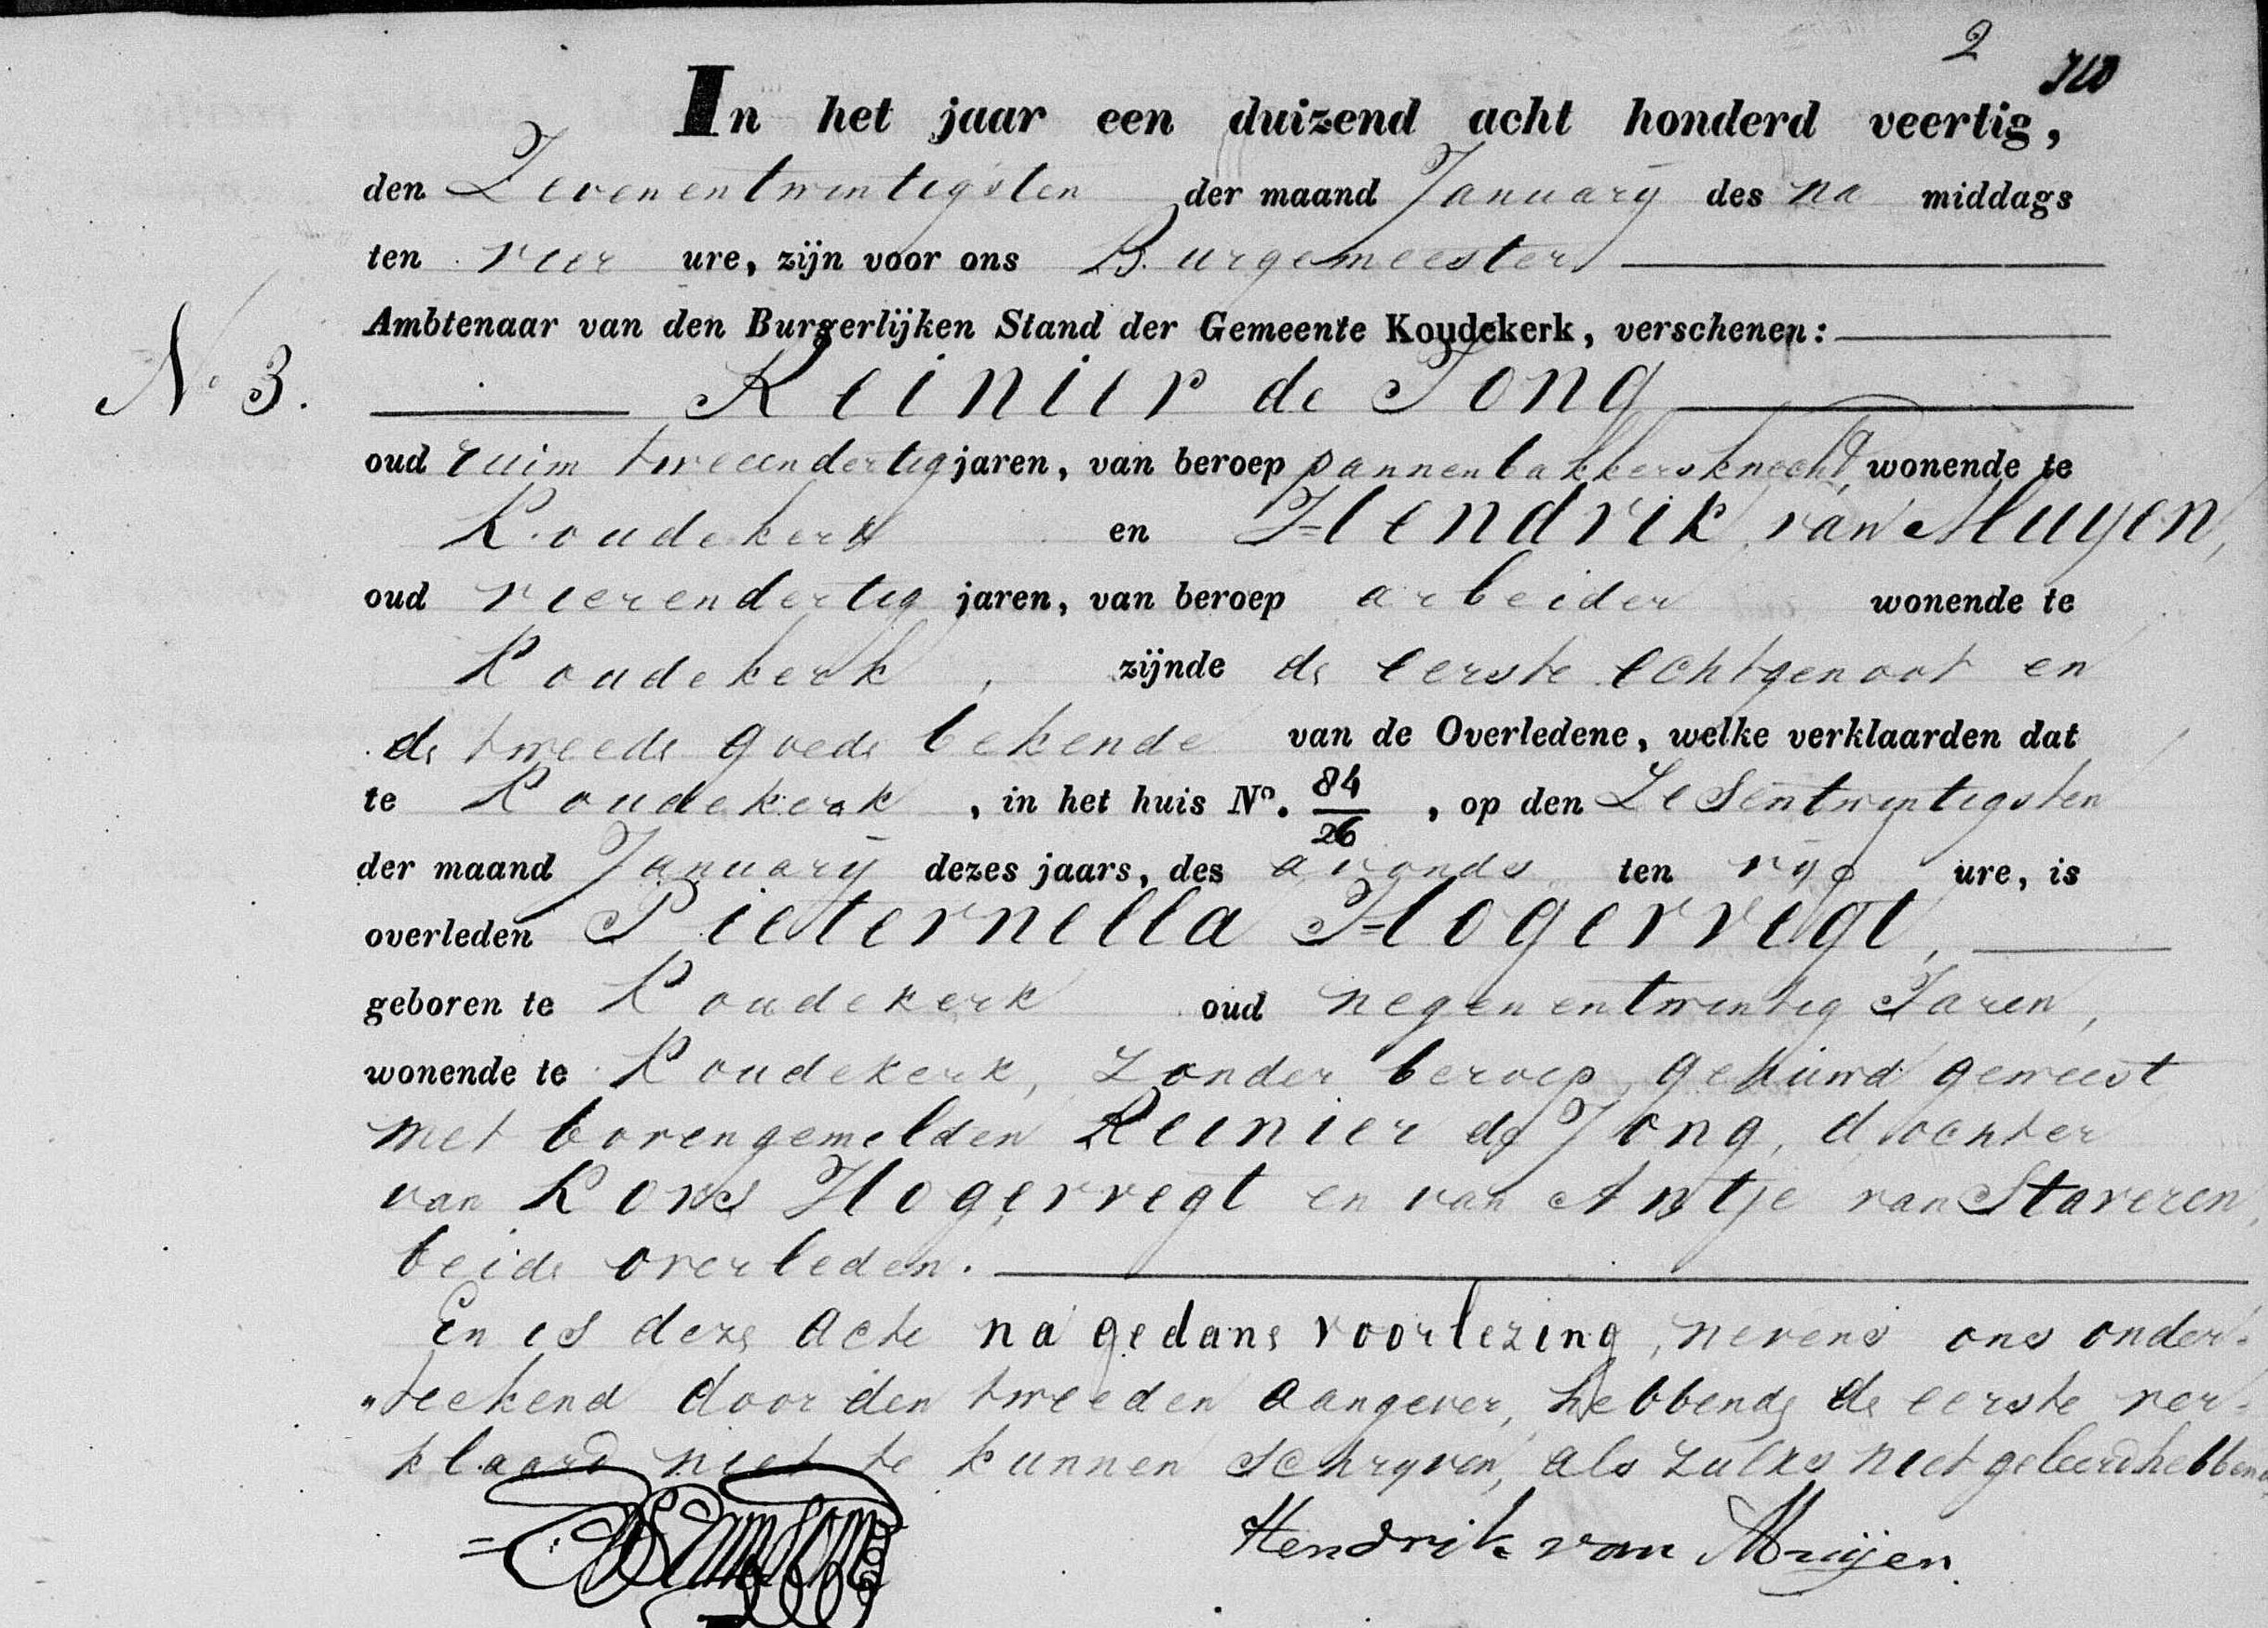 2
In het jaar een duizend acht honderd veertig,
den Zevenentwintigsten der maand January des na middags
ten vier ure, zijn voor ons Burgemeester
Ambtenaar van den Burgerlijken Stand der Gemeente Koudekerk, verschenen:
N. 3.
Reinier de Jong
oud ruim tweeendertig jaren, van beroep pannenbakkersknecht, wonende te
Koudekerk en Hendrik van Muyen,
oud vierendertig jaren, van beroep arbeider wonende te
Koudekerk, zijnde de eerste echtgenoot en
de tweede goede bekende van de Overledene, welke verklaarden dat
te Koudekerk, in het huis No. 84/26, op den Zesentwintigsten
der maand January dezes jaars, des avonds ten vyf ure, is
overleden Pieternella Hogervegt,
geboren te Koudekerk oud negenentwintig Jaren,
wonende te Koudekerk, zonder beroep, gehuwd geweest
met bovengemelden Reinier de Jong, dochter
van Kors Hogervegt en van Antje van Staveren,
beide overleden.
En is deze acte na gedane voorlezing, nevens ons onder-
"teekend door den tweeden aangever, hebbende de eerste ver-
klaard niet te kunnen schryven, als zulks niet geleerd hebbende
Hendrik van Muijen.